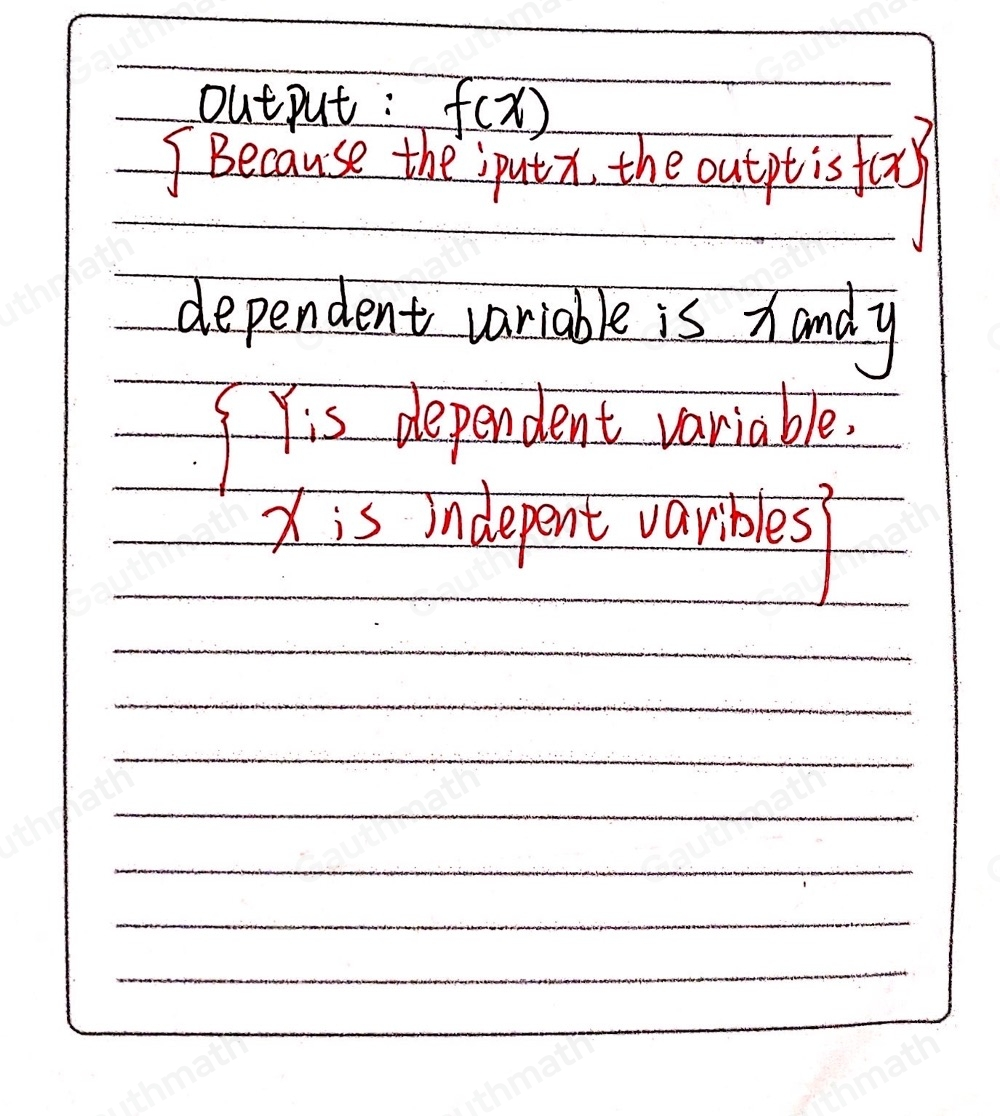 Output : f(x)
{ Because the iput x, the outpt is f(x) }
dependent variable is x and y
{ Y is dependent variable.
x is indepent varibles }